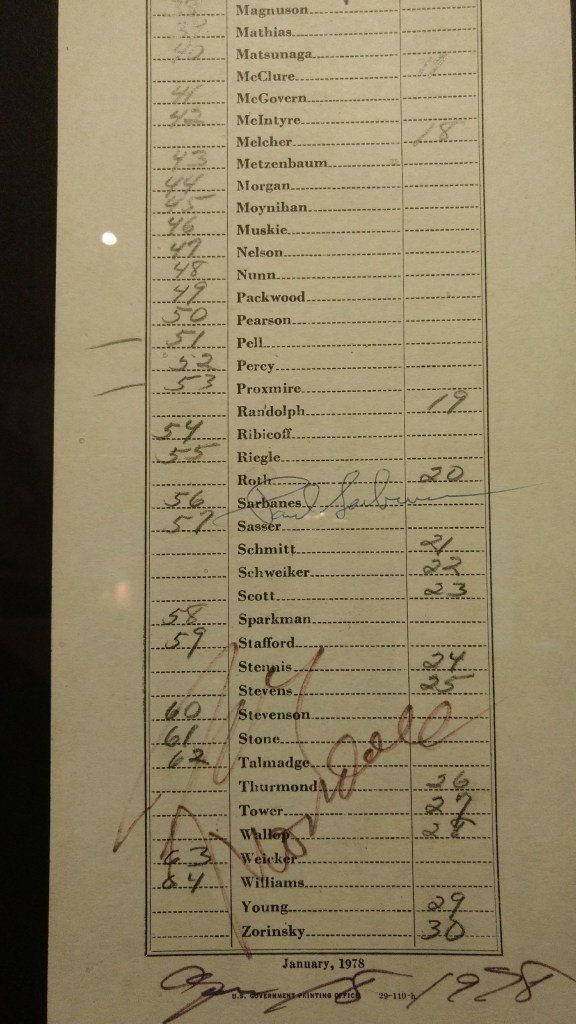 38 Magnuson
39 Mathias
40 Matsunaga
McClure 17
41 McGovern
42 McIntyre
Melcher 18
43 Metzenbaum
44 Morgan
45 Moynihan
46 Muskie
47 Nelson
48 Nunn
49 Packwood
50 Pearson
51 Pell
52 Percy
53 Proxmire
Randolph 19
54 Ribicoff
55 Riegle
Roth 20
56 Sarbanes Paul Sarbanes
57 Sasser
Schmitt 21
Schweiker 22
Scott 23
58 Sparkman
59 Stafford
Stennis 24
Stevens 25
60 Stevenson
61 Stone
62 Talmadge
Thurmond 26
Tower 27
Wallop 28
63 Weicker
64 Williams
Young 29
Zorinsky 30
Mondale
January, 1978
Apr 18 1978
U.S. GOVERNMENT PRINTING OFFICE 29-110-b